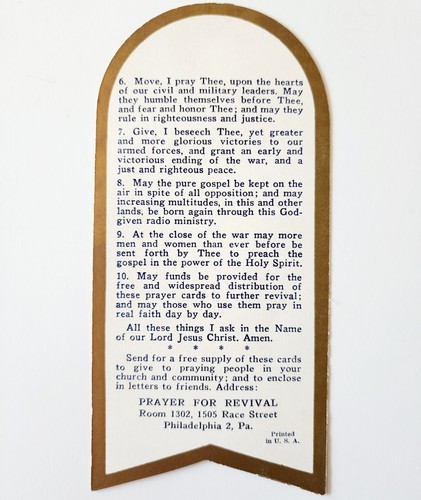 6. Move, I pray Thee, upon the hearts
of our civil and military leaders. May
they humble themselves before Thee,
and fear and honor Thee; and may they
rule in righteousness and justice.
7. Give, I beseech Thee, yet greater
and more glorious victories to our
armed forces, and grant an early and
victorious ending of the war, and a
just and righteous peace.
8. May the pure gospel be kept on the
air in spite of all opposition; and may
increasing multitudes, in this and other
lands, be born again through this God-
given radio ministry.
9. At the close of the war may more
men and women than ever before be
sent forth by Thee to preach the
gospel in the power of the Holy Spirit.
10. May funds be provided for the
free and widespread distribution of
these prayer cards to further revival;
and may those who use them pray in
real faith day by day.
All these things I ask in the Name
of our Lord Jesus Christ. Amen.
* * * *
Send for a free supply of these cards
to give to praying people in your
church and community; and to enclose
in letters to friends. Address:
PRAYER FOR REVIVAL
Room 1302, 1505 Race Street
Philadelphia 2, Pa.
Printed
in U. S. A.